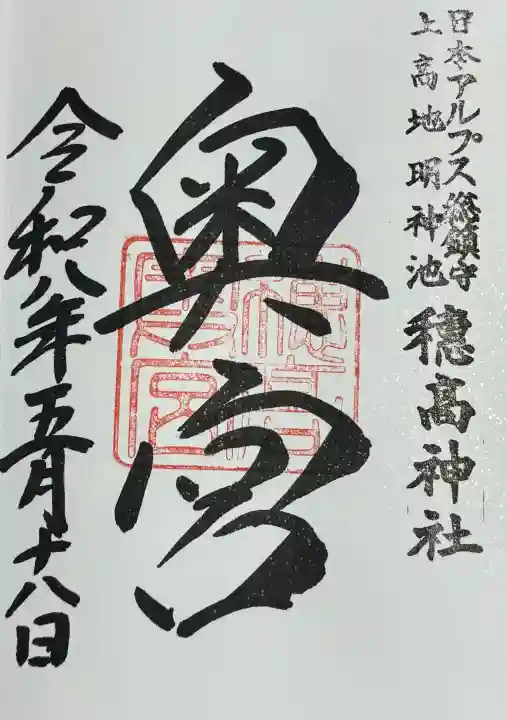 日本アルプス総鎮守
上高地明神池
穂高神社
奥宮
令和八年五月十八日